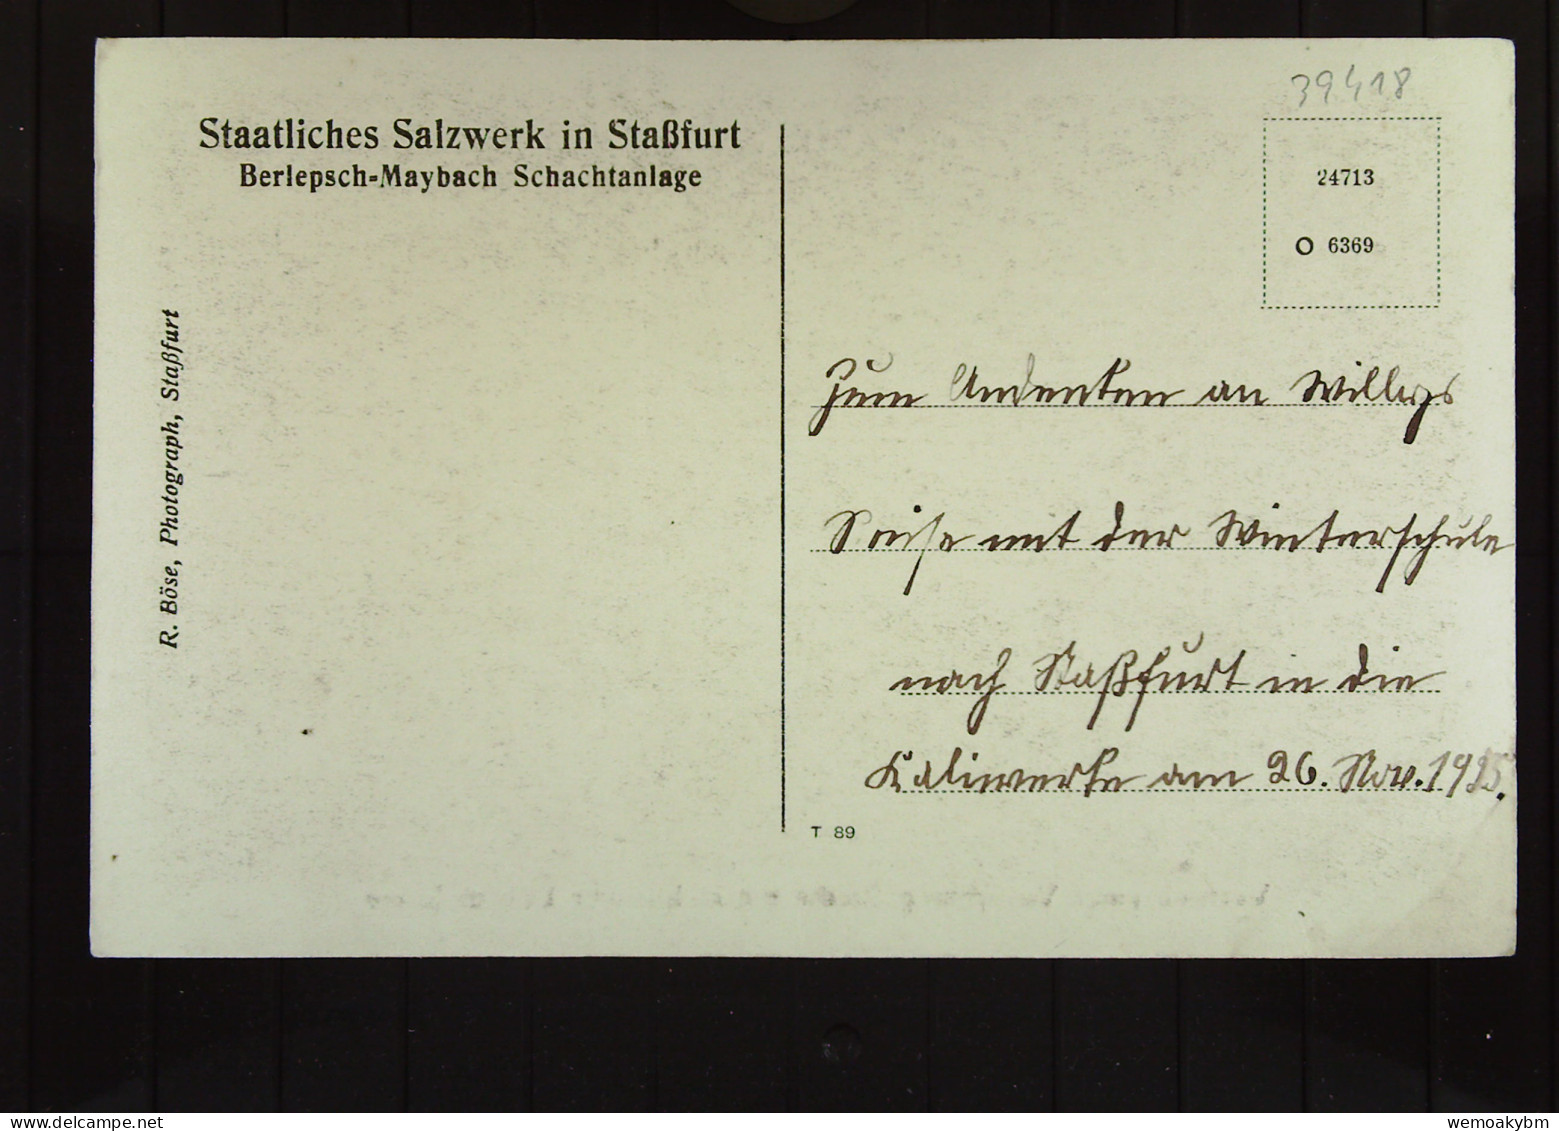 39418
Staatliches Salzwerk in Staßfurt
Berlepsch-Maybach Schachtanlage
24713
O 6369
R. Böse, Photograph, Staßfurt
Zum Andenken an Willys
Reise mit der Winterschule
nach Staßfurt in die
Kaliwerke am 26. Nov. 1925.
T 89
wemoakybm
delcampe.net